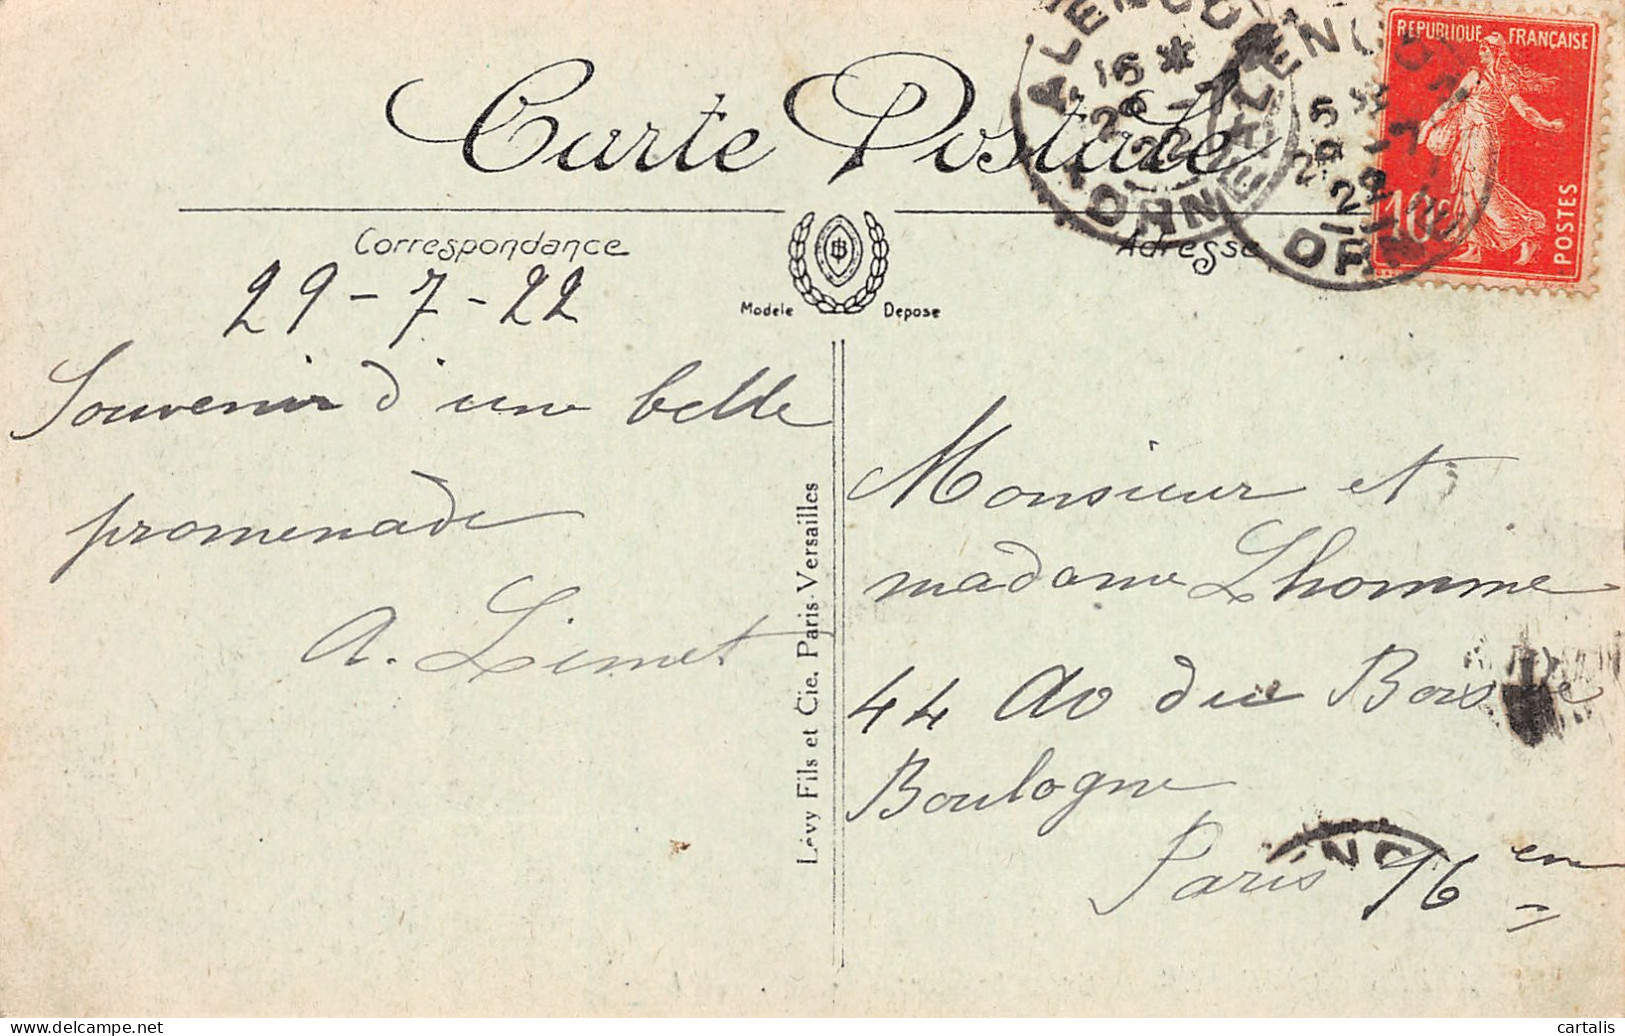 Carte Postale
Correspondance
Adresse
Modele Depose
REPUBLIQUE FRANÇAISE
10c
POSTES
ALENCON
16 *
29 -7
22
ORNE
ALENCON
29 -7
22
ORNE
29-7-22
Souvenir d'une belle
promenade
A. Limet
Lévy Fils et Cie, Paris-Versailles
Monsieur et
madame Lhomme
44 Av du Bois de
Boulogne
Paris 16 em
www.delcampe.net
cartalis